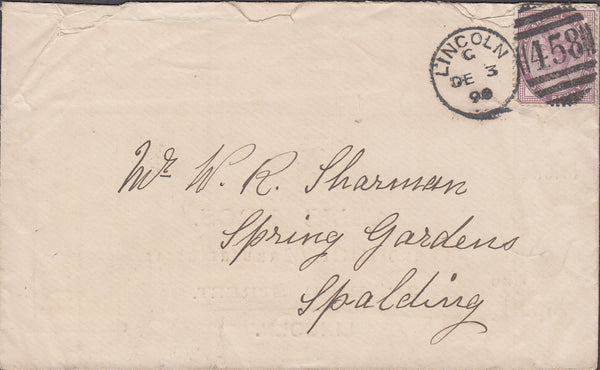 LINCOLN
G
DE 3
90
458
Mr. W. R. Sharman
Spring Gardens
Spalding